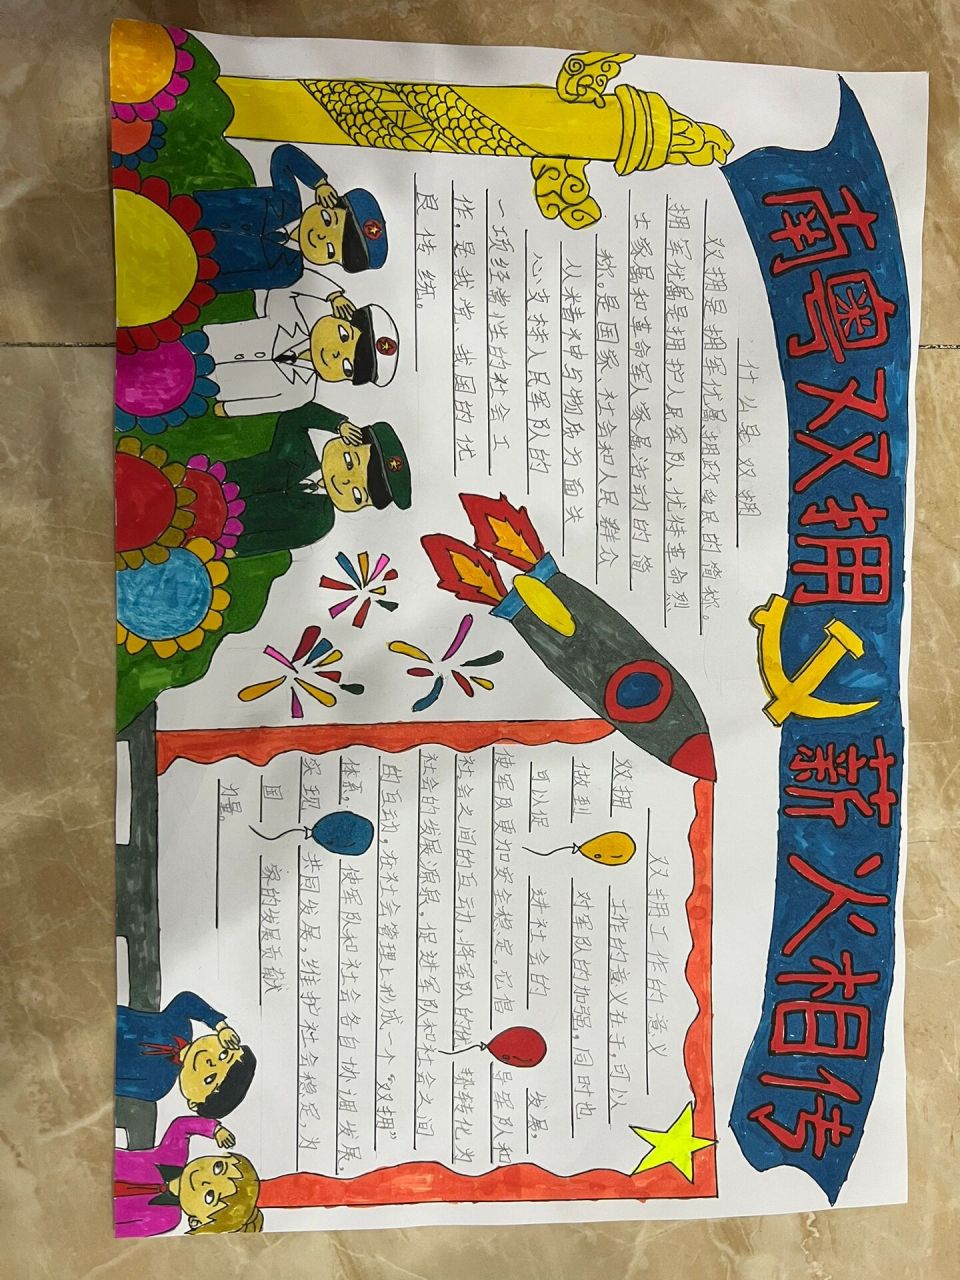 南粤双拥 薪火相传
什么是双拥
双拥是拥军优属拥政爱民的简称。
拥军优属是拥护人民军队,优待革命烈
士家属和革命军人家属活动的简
称。是国家、社会和人民群众
从精神与物质方面关
心支持人民军队的
一项经常性的社会工
作。是我党、我国的优
良传统。
双拥工作的意义
双拥工作的意义在于,可以
做到对军队的加强,同时也
可以促进社会的发展,
使军队更加安全稳定。它倡导军队和
社会之间的互动,将军队的优势转化为
社会的发展源泉,促进军队和社会之间
的互动,在社会管理上形成一个“双拥”
体系。使军队和社会各自协调发展,
实现共同发展,维护社会稳定,为
国家的发展贡献
力量。